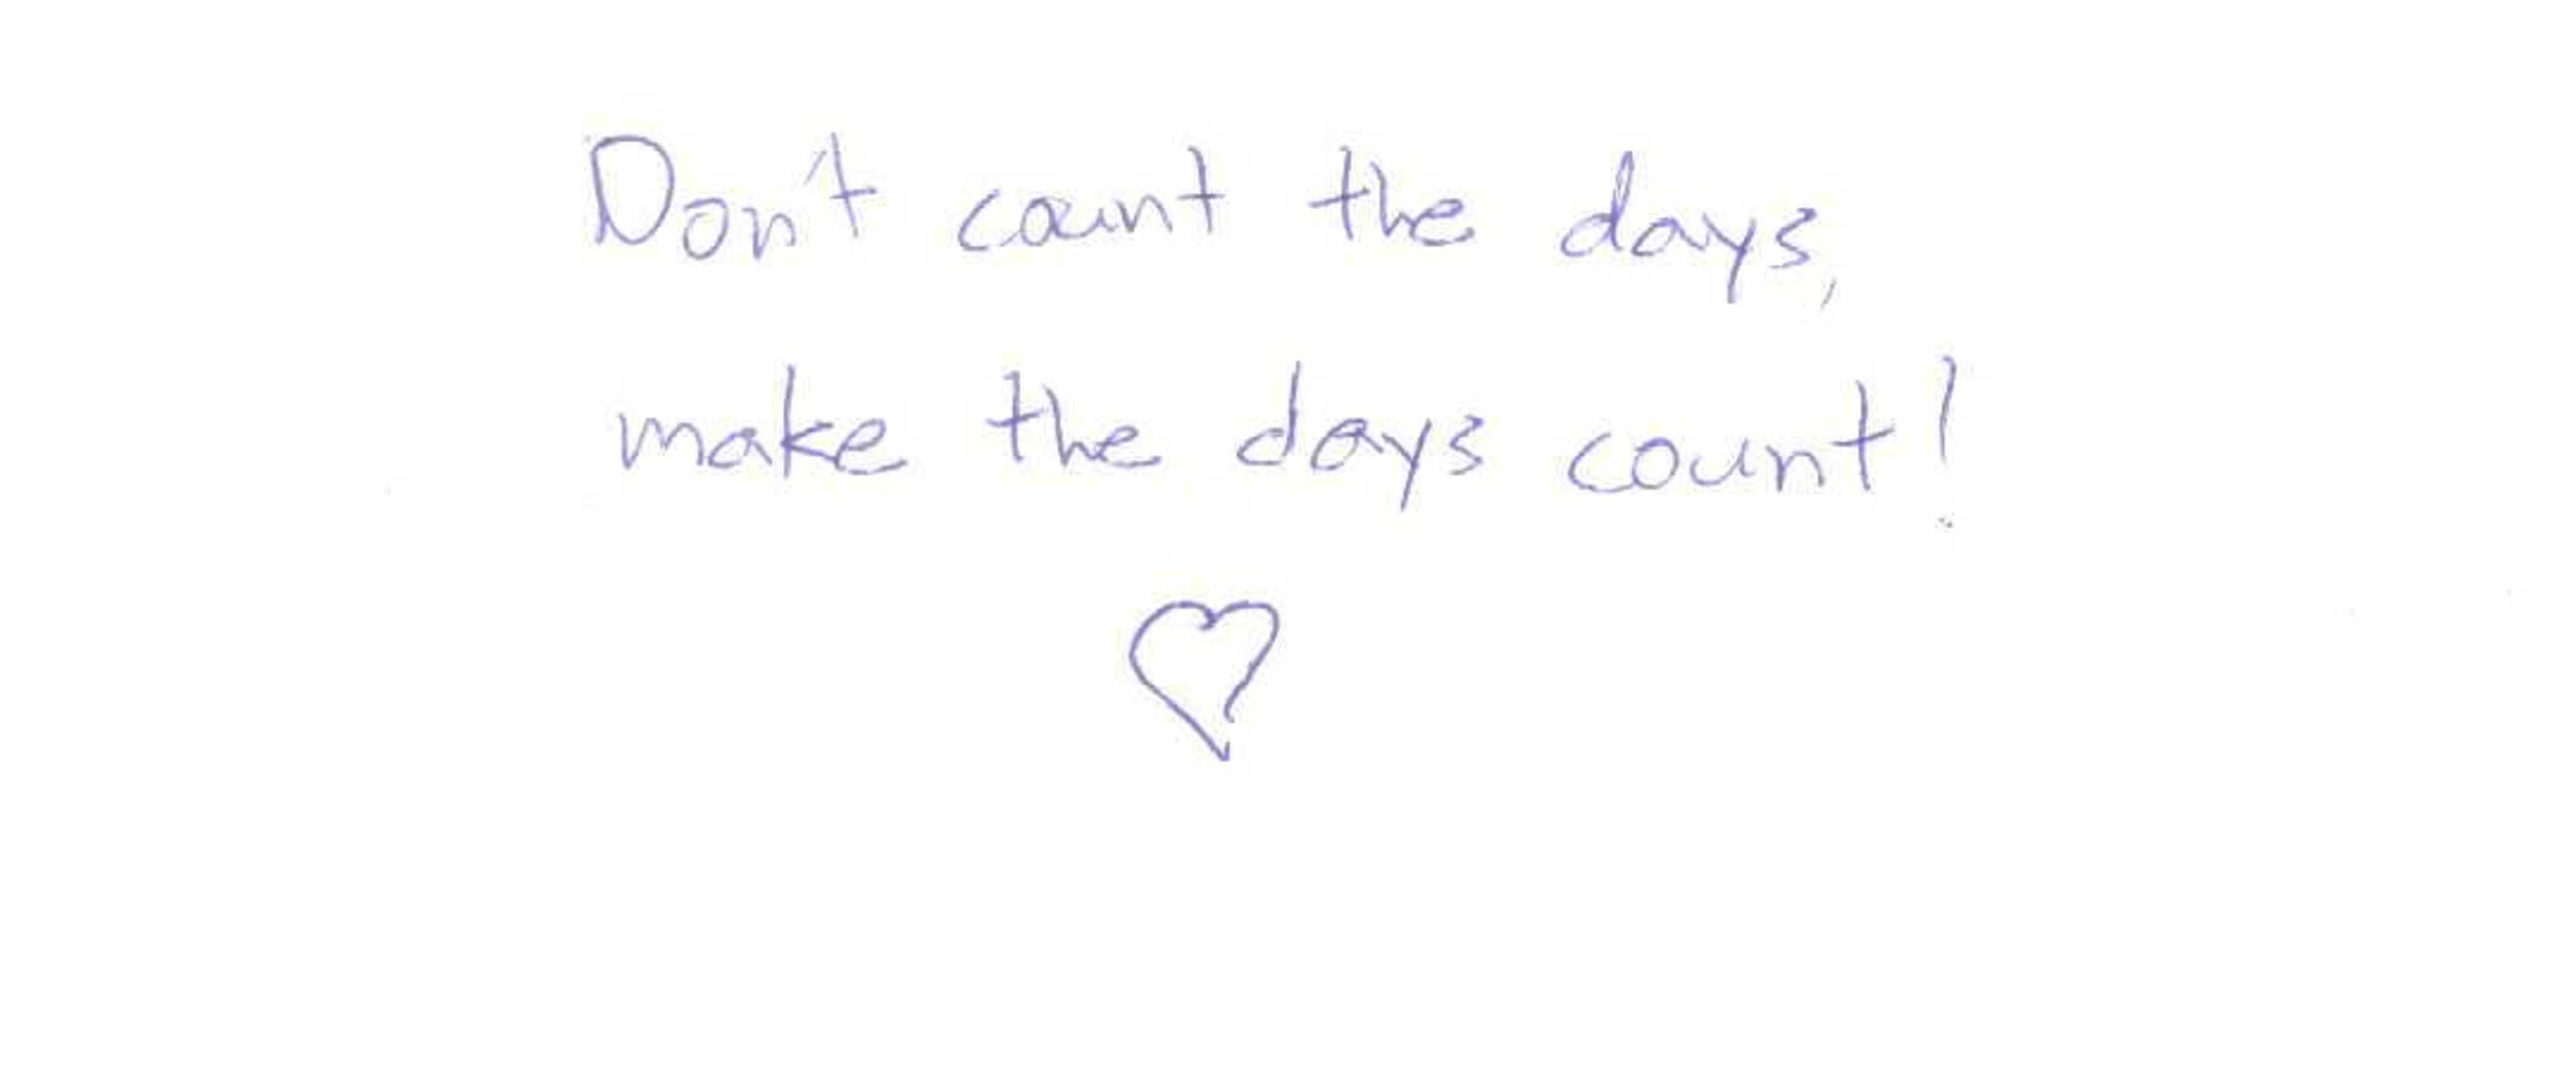 Don't count the days,
make the days count!